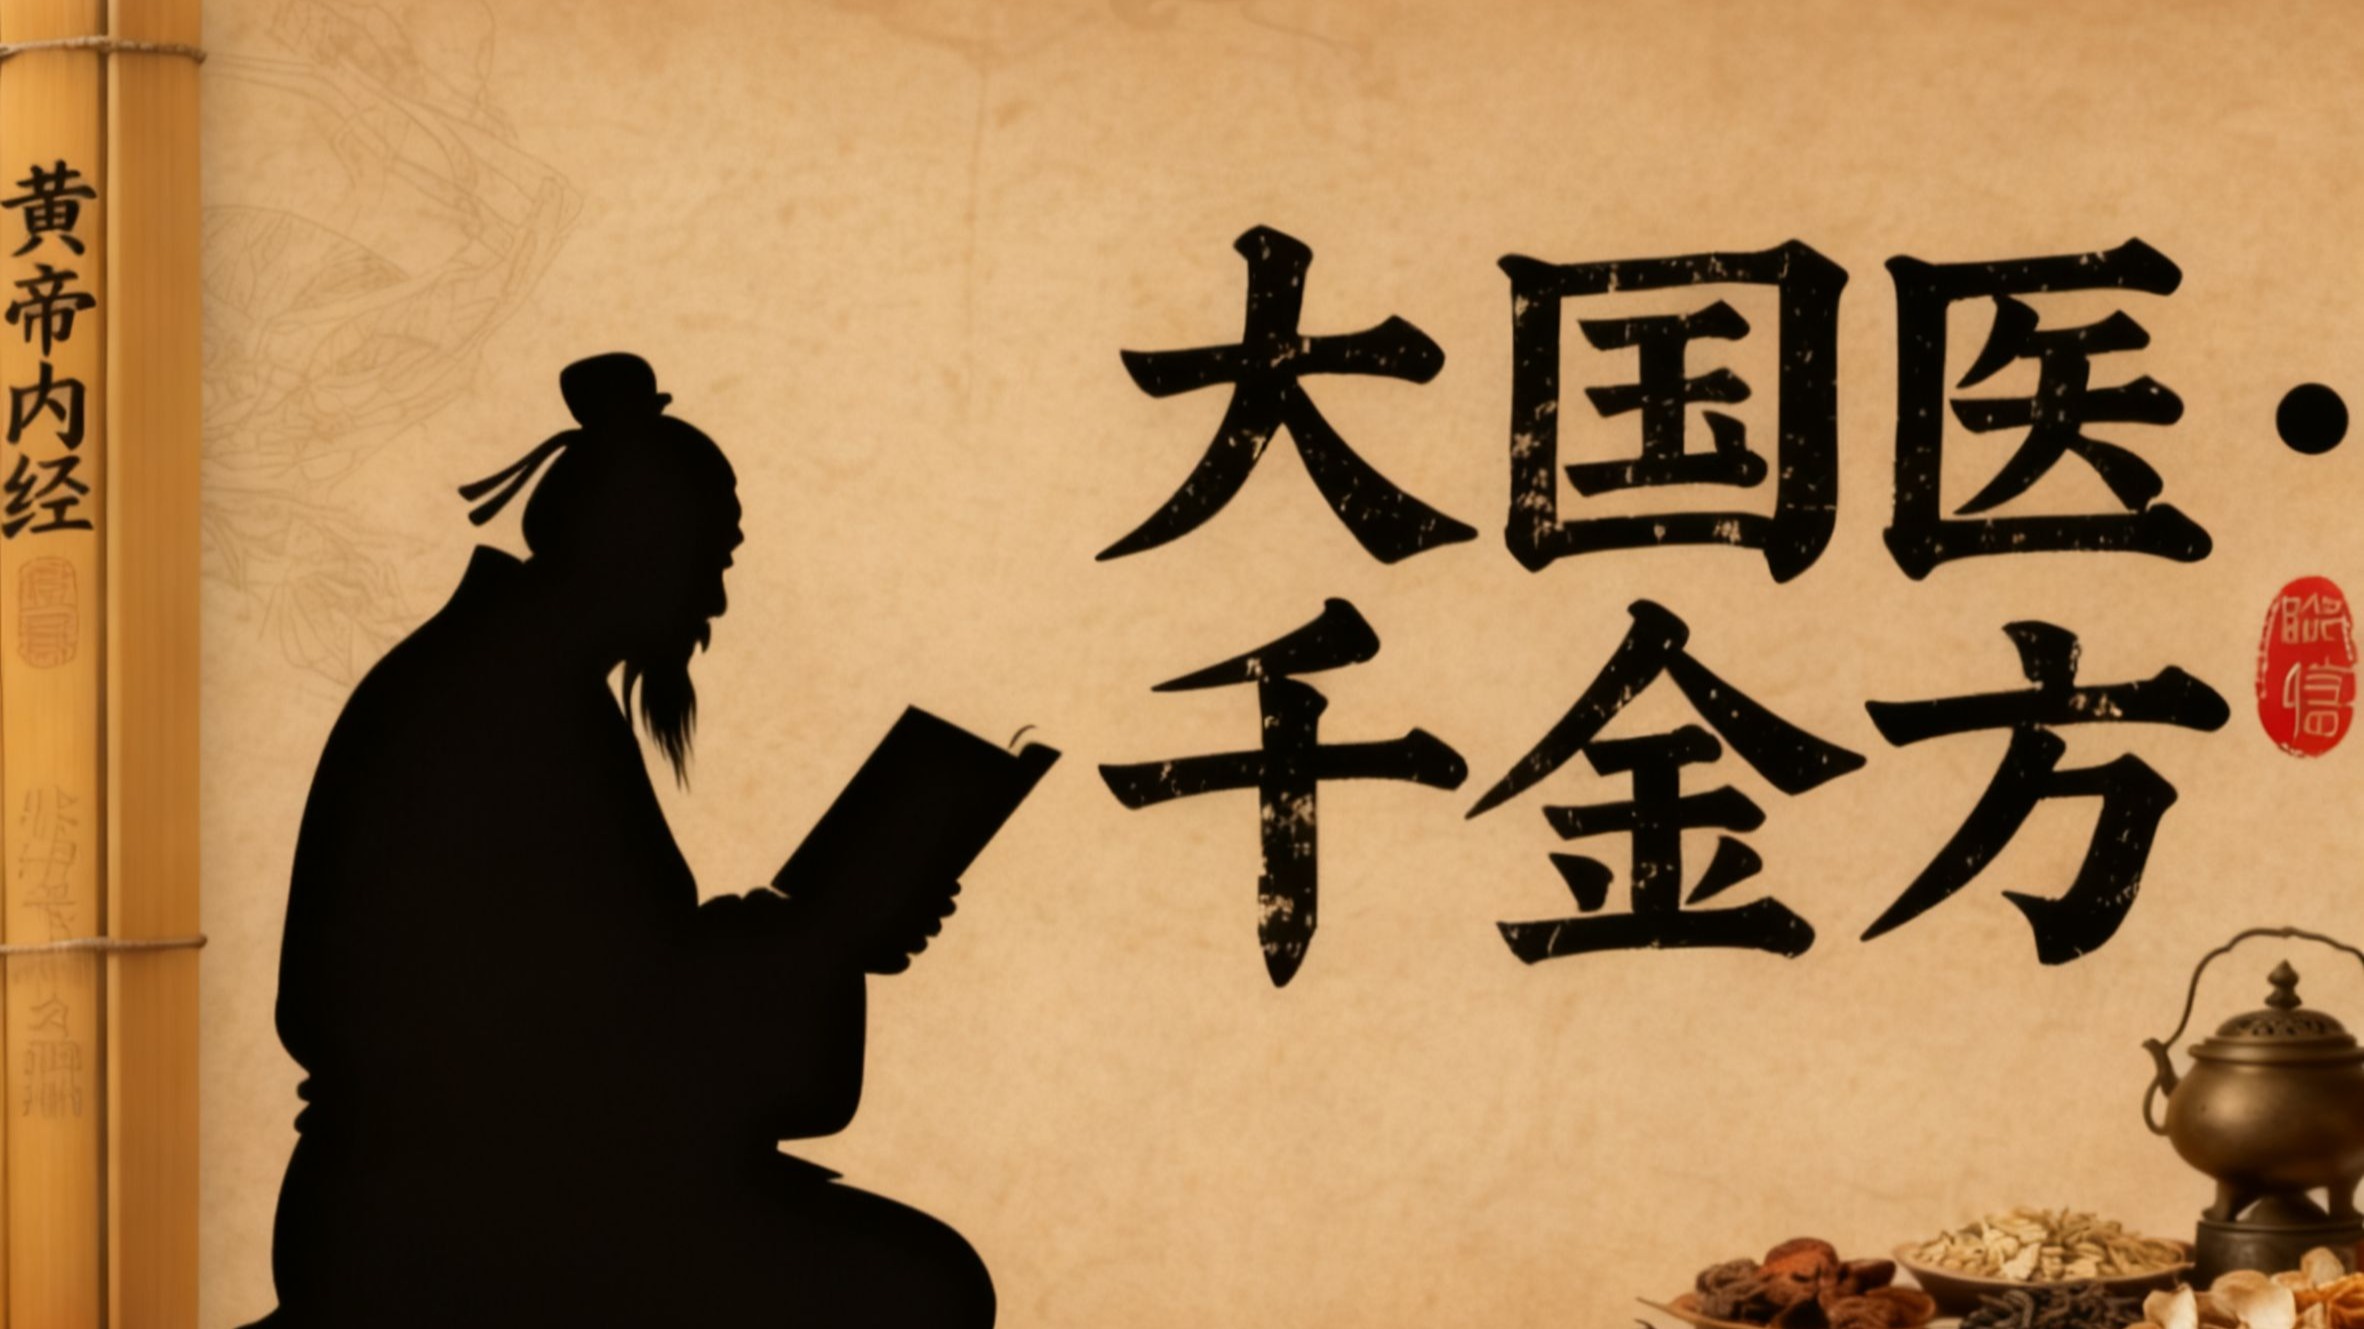 黄帝内经
大国医·
千金方